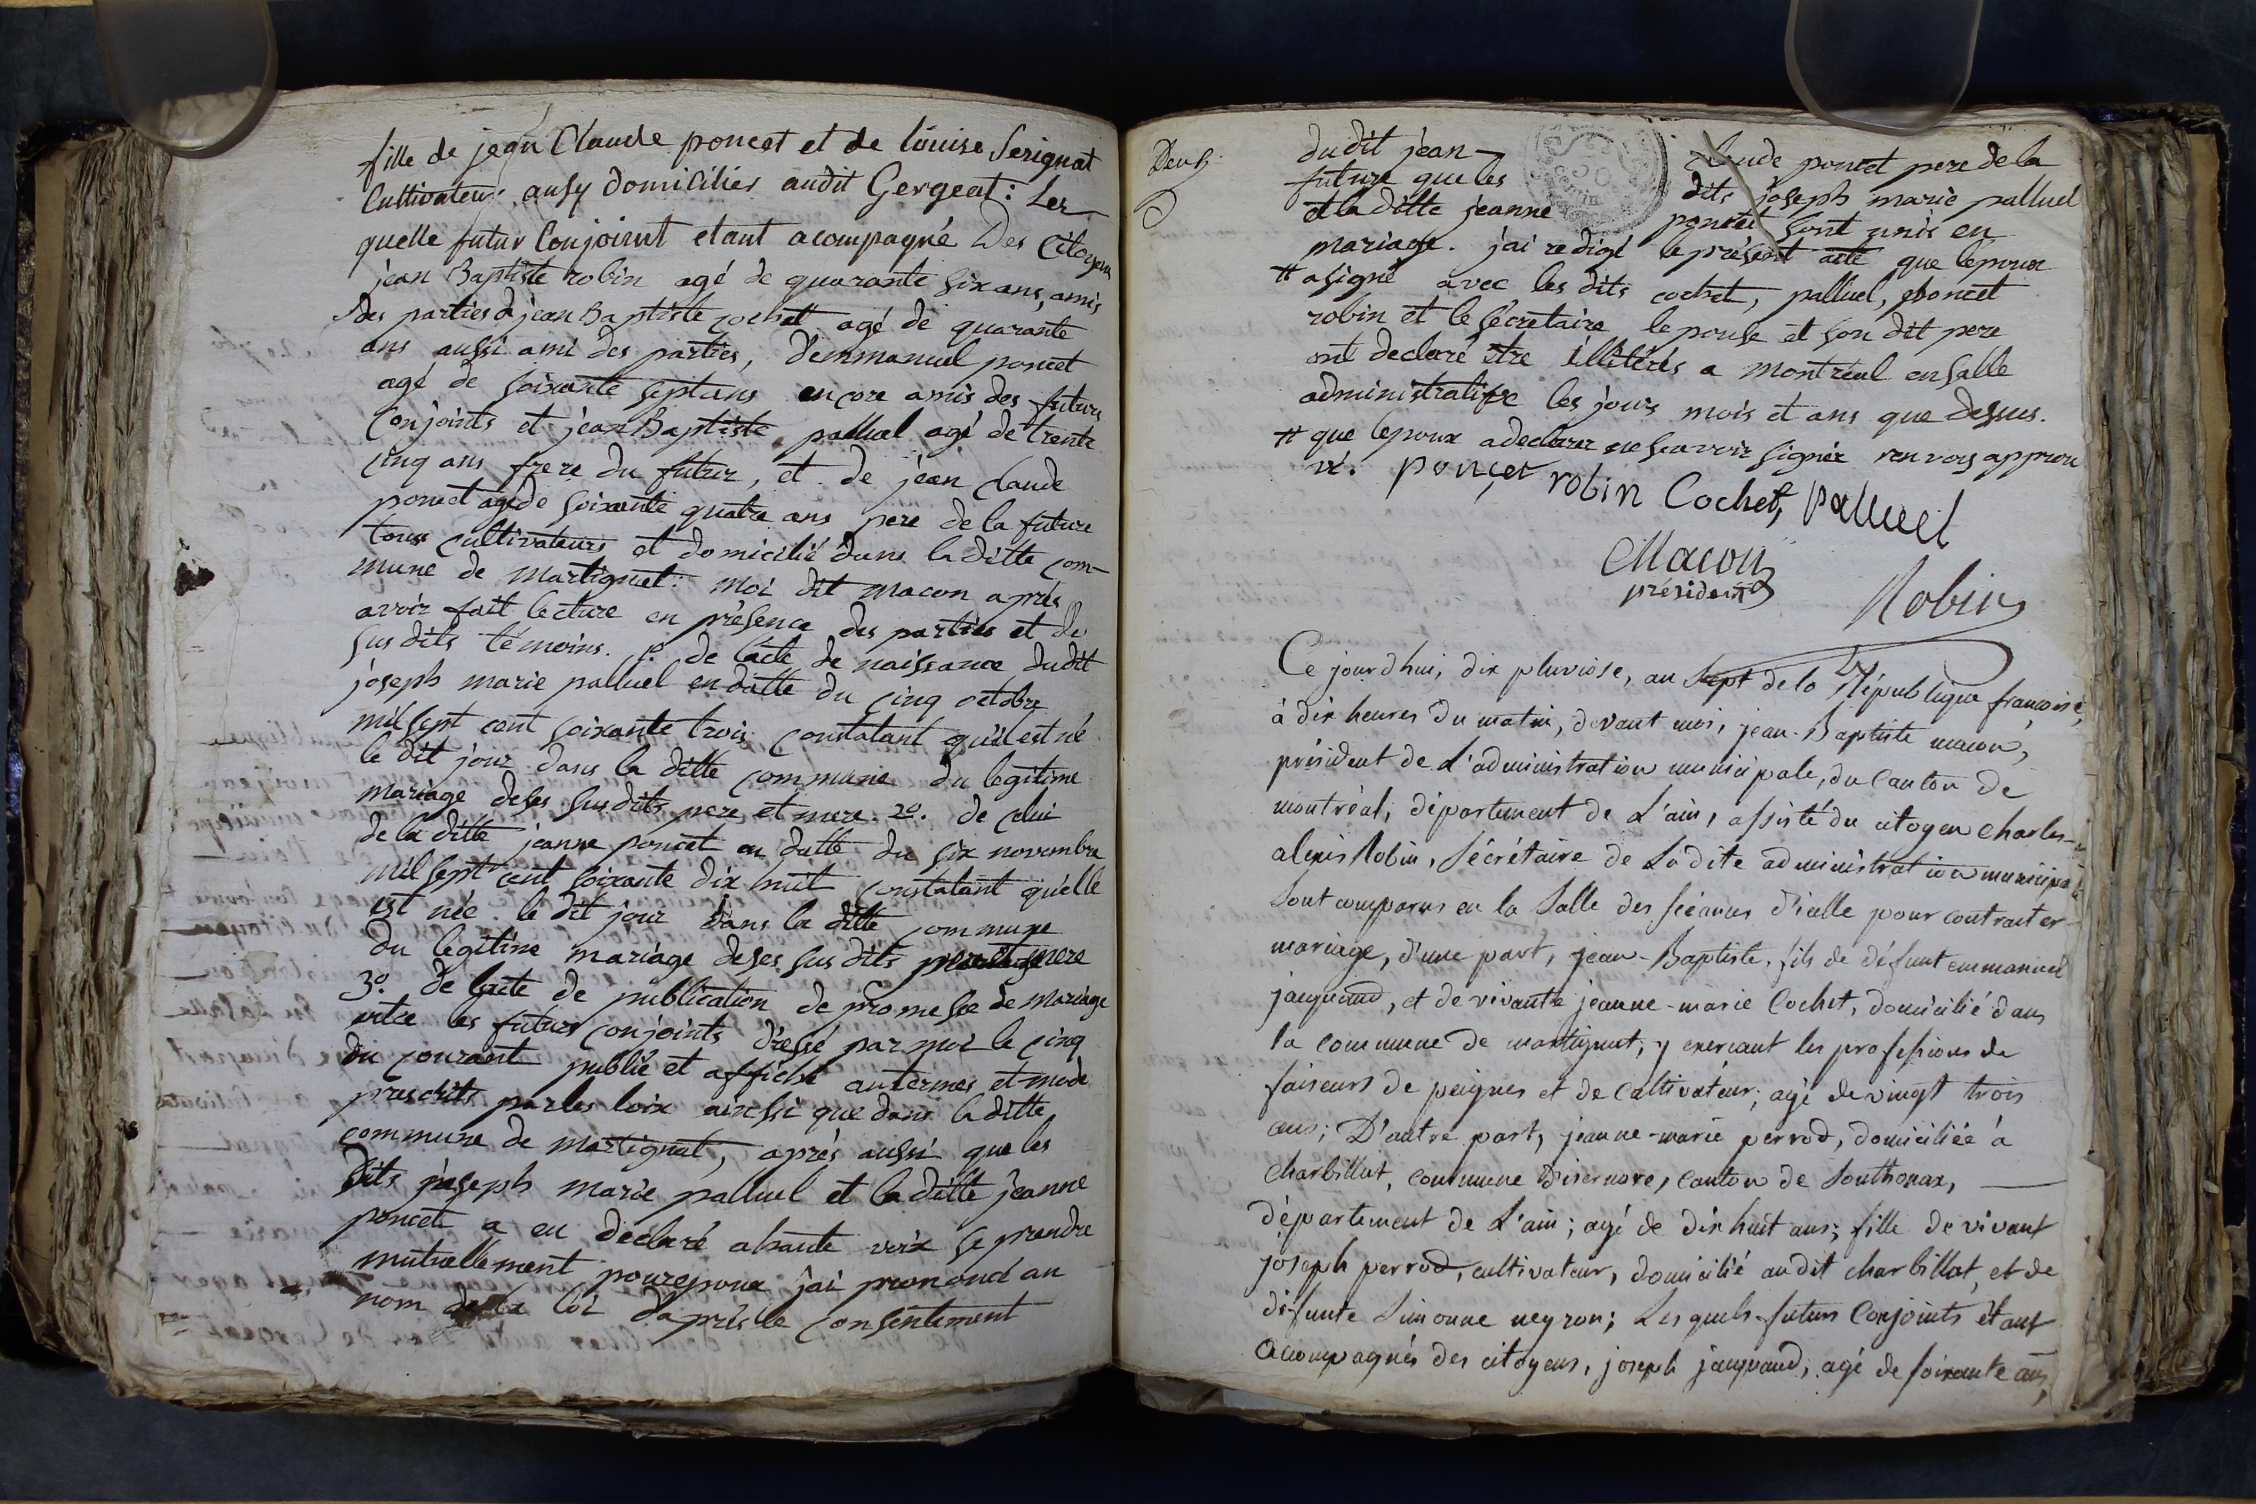 fille de jean Claude poncet et de louise Serignat
Cultivateurs ausy domicilies audit Gergeat: Les
quelle futur Conjoint etant acompagné Des Citoyens
jean Baptiste robin agé de quarante six ans, amis
des parties & jean Baptiste cochet agé de quarante
ans aussi ami des parties, d'emmanuel poncet
agé de soixante sept ans encore amis des futurs
conjoints et jean Baptiste palluel agé de trente
cinq ans frere du futur, et de jean claude
poncet agé de soixante quatre ans pere de la future
tous cultivateurs et domicilié dans la ditte com-
mune de Martignat: moi dit macon aprés
avoir fait lecture en présence des parties et de
sus dits témoins. 1º de l'acte de naissance dudit
joseph marie palluel en datte du cinq octobre
mil sept cent soixante trois constatant qu'il est né
le dit jour dans la ditte commune du legitime
mariage de ses susdits pere et mere. 2º. de celui
de la ditte jeanne poncet en datte du six novembre
mil sept cent soixante dix huit constatant quelle
est née le dit jour dans la ditte commune
du legitime mariage de ses sus dits pere et mere
3º. de l'acte de publication de promesse de mariage
entre les futurs conjoints dressé par moi le cinq
du courant publié et affiché au termes et mode
prescrits par les loix ainssi que dans la ditte
commune de Martignat, aprés aussi que les
dits joseph marie palluel et la ditte jeanne
poncet a eu declaré a haute voix se prendre
mutuellement pour epoux j'ai prononcé au
nom de la loi d'aprés le consentement
Deux
dudit jean claude poncet pere de la
future que les dits joseph marie palluel
et la ditte jeanne poncet sont unis en
mariage. j'ai redigé le présent acte que l'epoux
# a signé avec les dits cochet, palluel, poncet
robin et le sécretaire l'epouse et son dit pere
ont declaré être illitérés a montréal en salle
administrative les jours mois et ans que dessus.
# que l'epoux a declarer ne scavoir signér renvois approu
vé. poncet robin Cochet, palluel
Macon
président
Robin
Ce jourd'hui, dix pluviose, an Sept de la République francoise,
à dix heures du matin, devant moi, jean-Baptiste macon,
président de L'administration municipale, du canton de
montréal, département de L'ain, assisté du citoyen charles-
alexis Robin, Sécrétaire de Ladite administration municipale
Sont comparus en la Salle des séances d'icelle pour contracter
mariage, d'une part, jean-Baptiste, fils de défunt emmanuel
jacquand, et de vivante jeanne-marie Cochet, domicilié dans
la commune de martignat, y exercant les professions de
faiseurs de peignes et de cultivateur; agé de vingt trois
ans; D'autre part, jeanne-marie perrod, domiciliée à
charbillat, commune Disernore, canton de Sonthonax,
département de L'ain; agé de dix huit ans; fille de vivant
joseph perrod, cultivateur, domicilié audit charbillat, et de
défunte Simonne neyron; Lesquels futurs Conjoints étant
accompagnés des citoyens, joseph jacquand, agé de soixante ans,